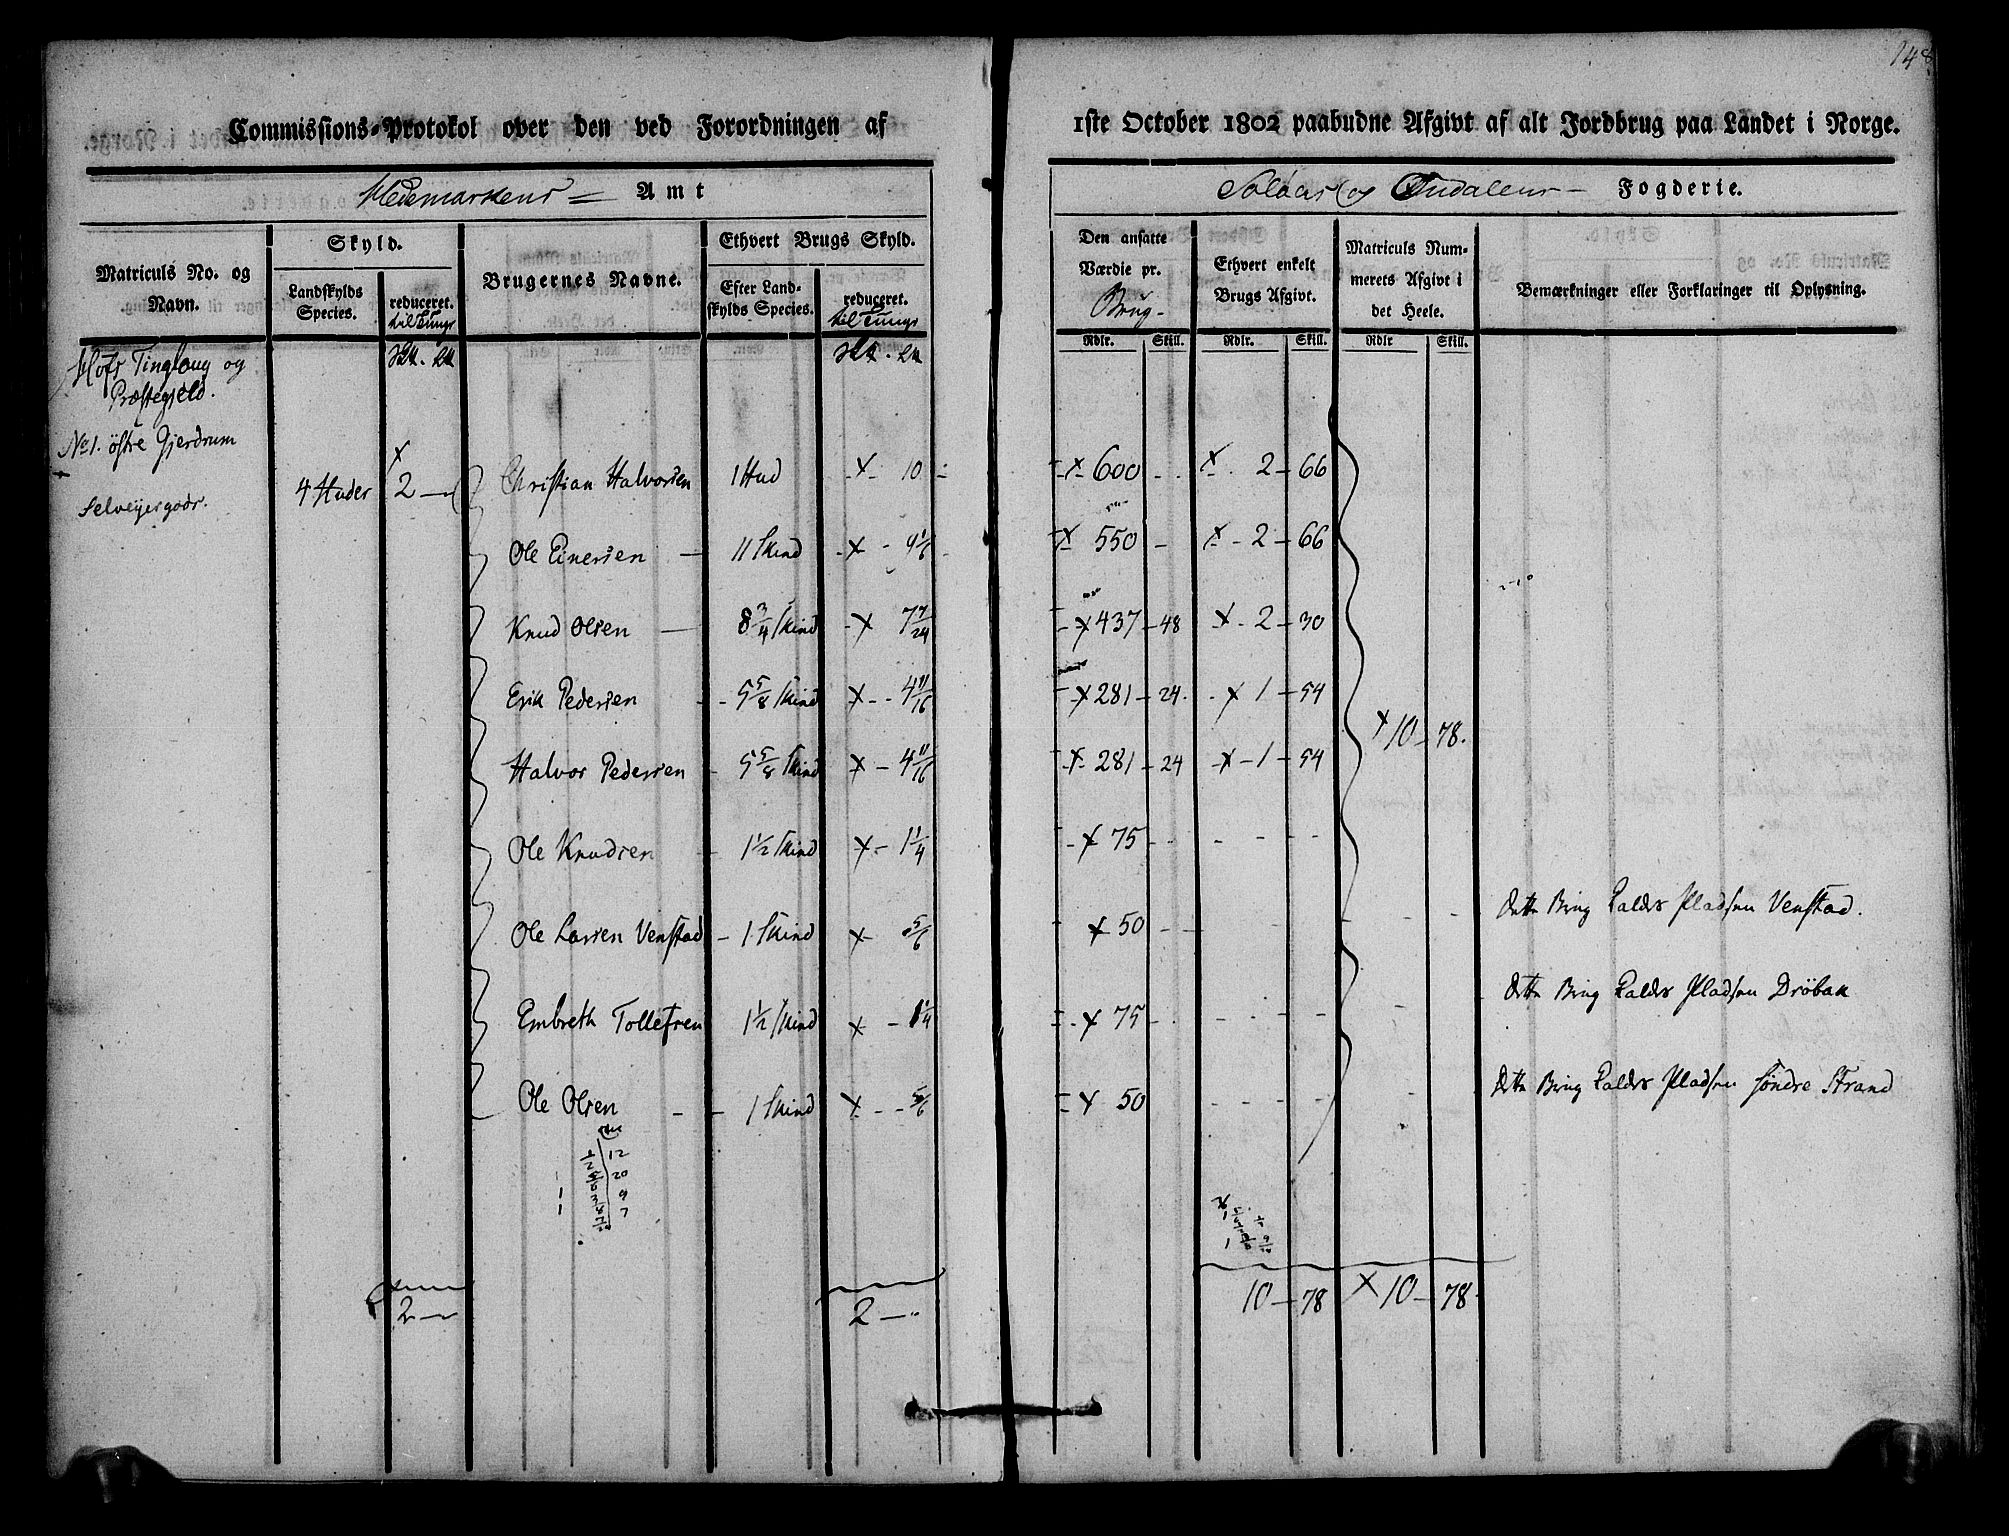 148
Commissions-Protokol over den ved Forordningen af 1ste October 1802 paabudne Afgivt af alt Jordbrug paa Landet i Norge.
Hedemarkens Amt
Soløer og Oudalens Fogderie.
Matriculs No. og Navn.
Skyld.
Landskylds Species.
reduceret. til Tunge
Brugernes Navne.
Ethvert Brugs Skyld.
Efter Landskylds Species.
reduceret. til Tunge
Den ansatte Værdie pr. Brug
Ethvert enkelt Brugs Afgivt.
Matriculs Nummerets Afgivt i det Heele.
Bemærkninger eller Forklaringer til Oplysning.
Rdlr. Skill. Rdlr. Skill. Rdlr Skill.
Hofs Tinglaug og
Præstegjeld.
No 1. östre Gjerdrum
Selveyergods.
4 Huder x 2 —
Christian Halvorsen 1 Hud x 10 x 600 x 2 — 66
Ole Einersen — 11 Skind x 9 1/6 x 550 — x 2 — 66
Knud Olsen — 8 3/4 Skind x 7 7/24 x 437 — 48 x 2 — 30
Erik Pedersen 5 5/8 Skind x 4 11/16 x 281 — 24 x 1 — 54
x 10 — 78.
Halvor Pedersen 5 5/8 Skind x 4 11/16 x 281 — 24 x 1 — 54
Ole Knudsen 1 1/2 Skind x 1 1/4 x 75
Ole Larsen Venstad 1 Skind x 5/6 x 50 dette Brug Kaldes Pladsen Venstad.
Embreth Tollefsen 1 1/2 Skind x 1 1/4 x 75 dette Brug Kaldes Pladsen Dröbak
Ole Olsen 1 Skind x 5/6 x 50 dette Brug Kaldes Pladsen söndre Strand
12
20
9
7
2 — 2 — 10 — 78 x 10 — 78